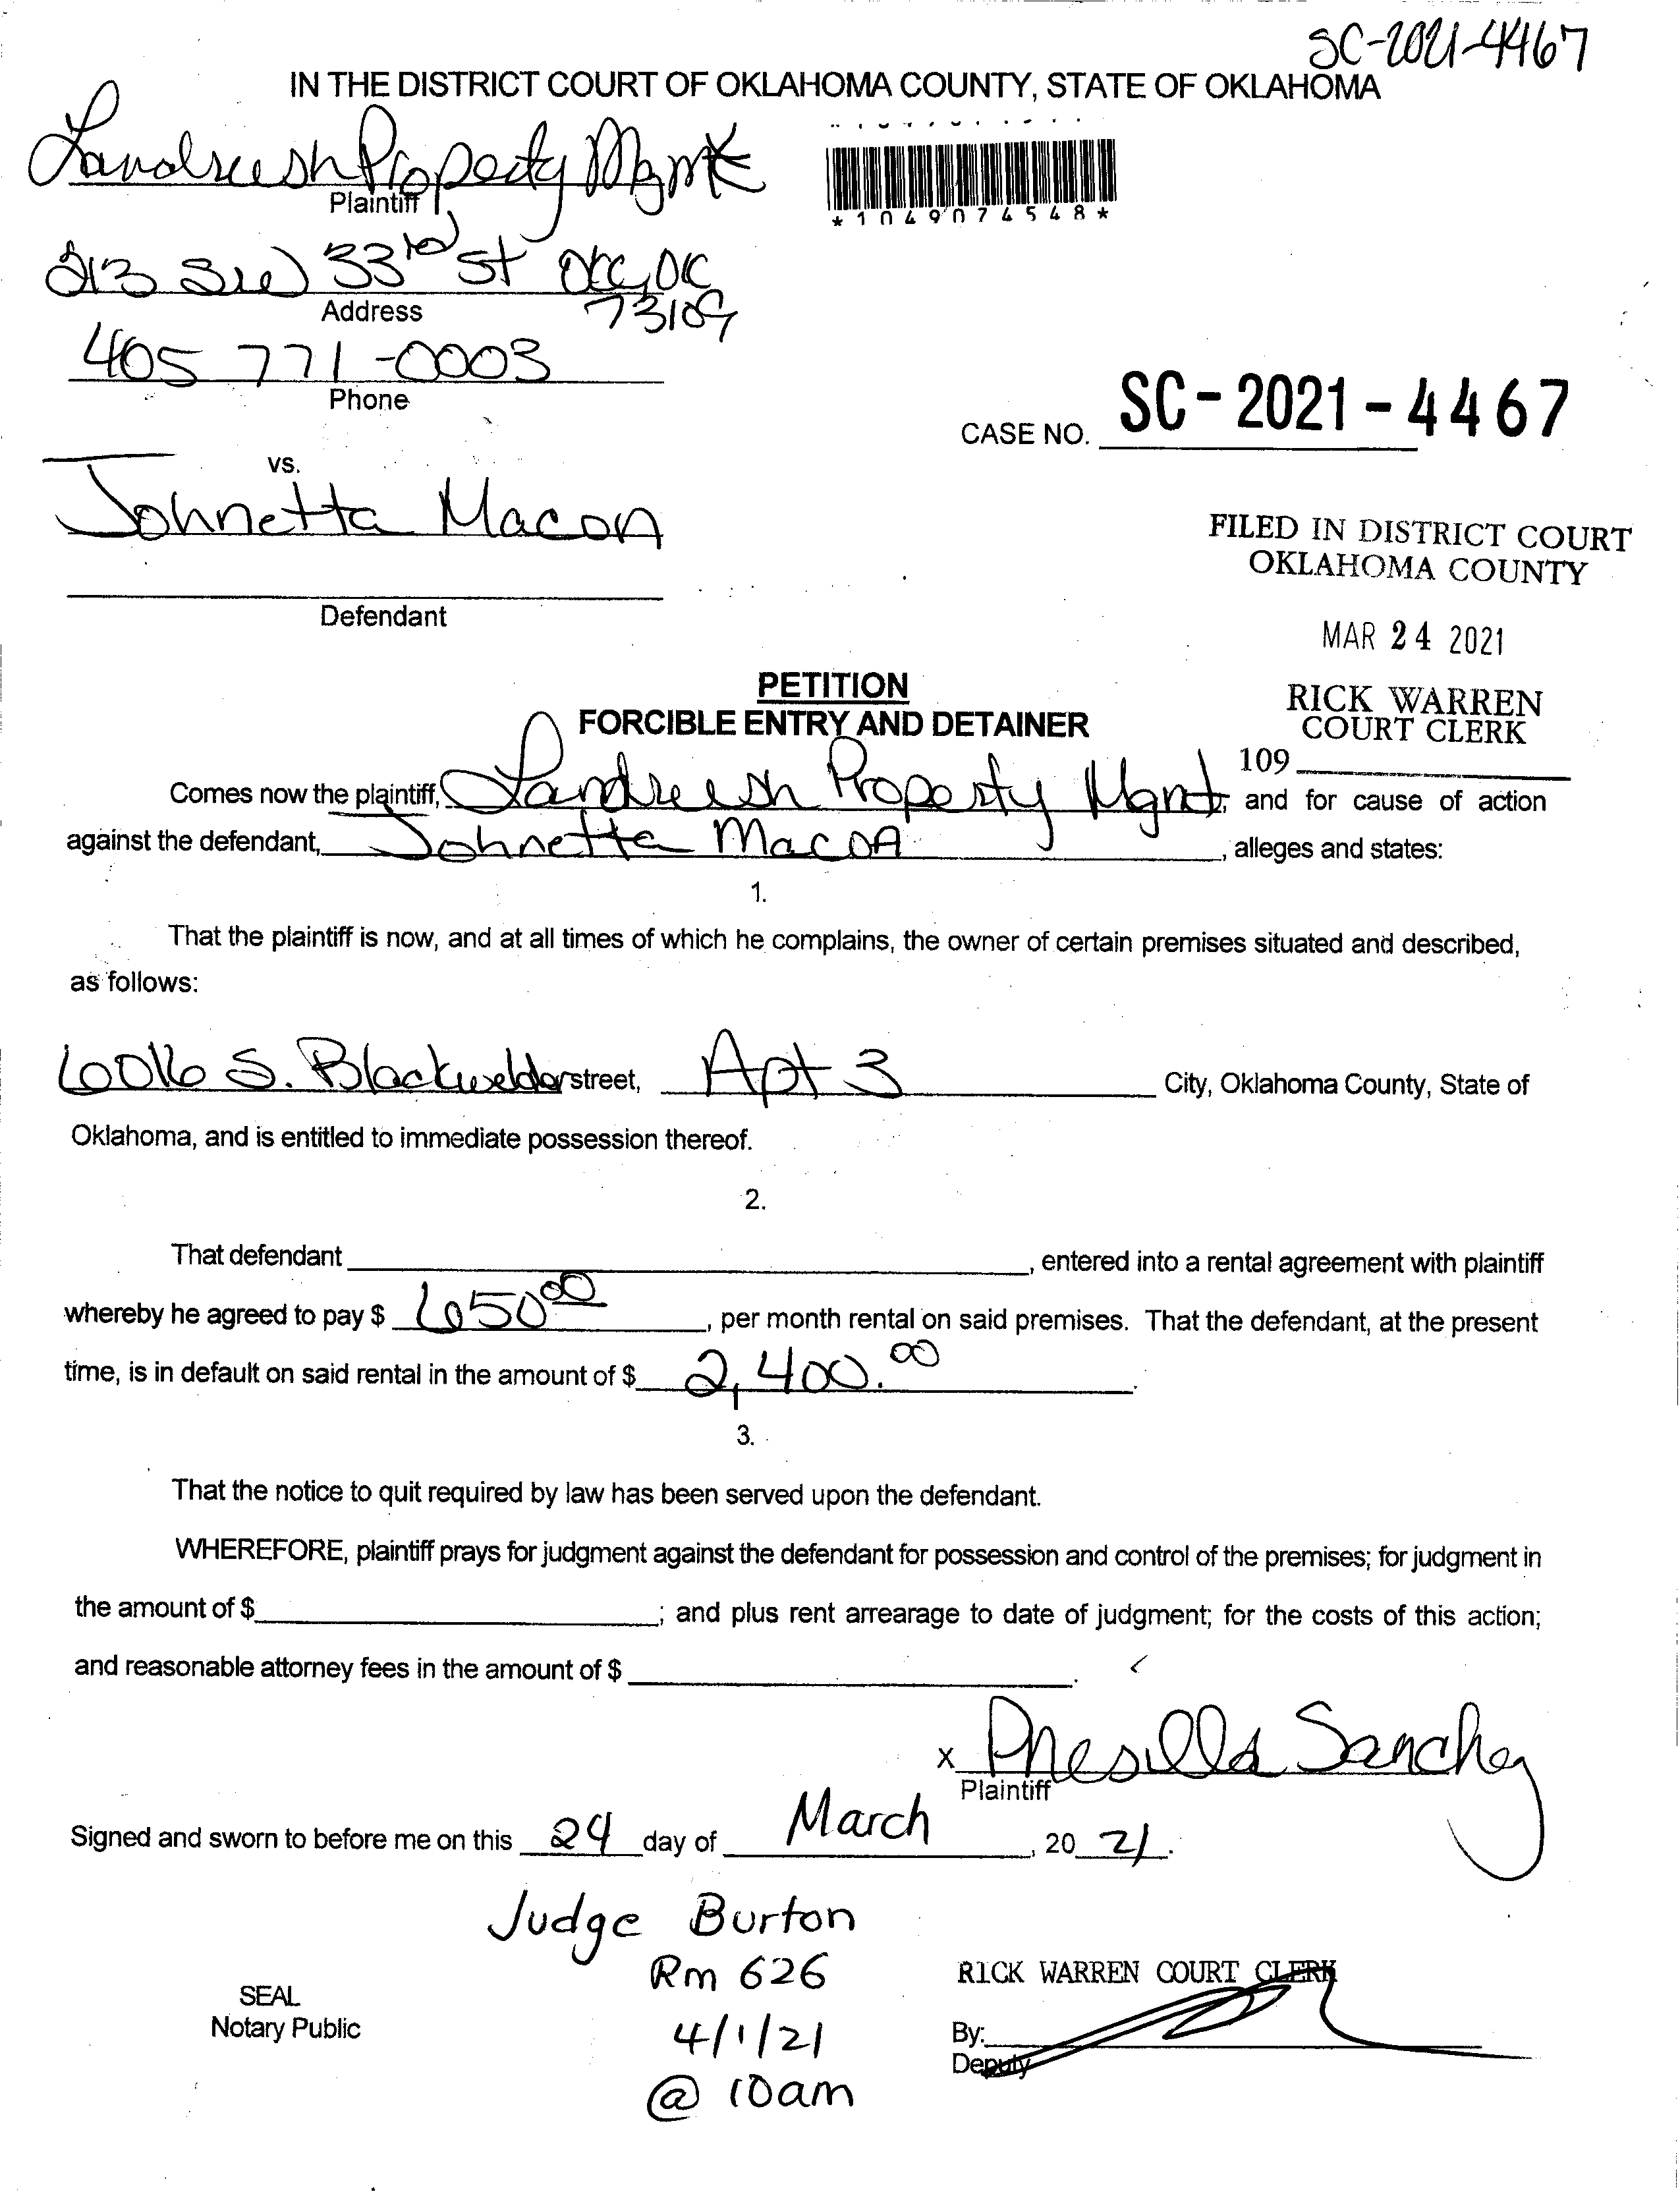 SC-2021-4467
IN THE DISTRICT COURT OF OKLAHOMA COUNTY, STATE OF OKLAHOMA
Landreesh Property Mgmt
Plaintiff
*1049074548*
213 SW 33rd St OKC, OK
73109
Address
405 771-0003
Phone
CASE NO. SC-2021-4467
vs.
Johnetta Macon
Defendant
FILED IN DISTRICT COURT
OKLAHOMA COUNTY
MAR 24 2021
RICK WARREN
COURT CLERK
109
PETITION
FORCIBLE ENTRY AND DETAINER
Comes now the plaintiff, Landreesh Property Mgmt, and for cause of action
against the defendant, Johnetta Macon, alleges and states:
1.
That the plaintiff is now, and at all times of which he complains, the owner of certain premises situated and described,
as follows:
6016 S. Blackwelder street, Apt 3 City, Oklahoma County, State of
Oklahoma, and is entitled to immediate possession thereof.
2.
That defendant , entered into a rental agreement with plaintiff
whereby he agreed to pay $ 650.00, per month rental on said premises. That the defendant, at the present
time, is in default on said rental in the amount of $ 2,400.00.
3.
That the notice to quit required by law has been served upon the defendant.
WHEREFORE, plaintiff prays for judgment against the defendant for possession and control of the premises; for judgment in
the amount of $ ; and plus rent arrearage to date of judgment; for the costs of this action;
and reasonable attorney fees in the amount of $ .
X Presilla Sanchez
Plaintiff
Signed and sworn to before me on this 24 day of March, 20 21.
Judge Burton
Rm 626
4/1/21
@ 10am
SEAL
Notary Public
RICK WARREN COURT CLERK
By:
Deputy